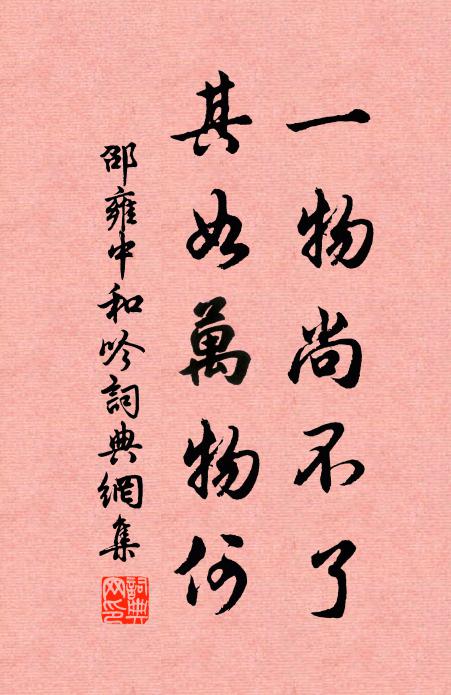 一物尚不了
其如萬物何
邵雍中和吟詞典網集
詞典網印